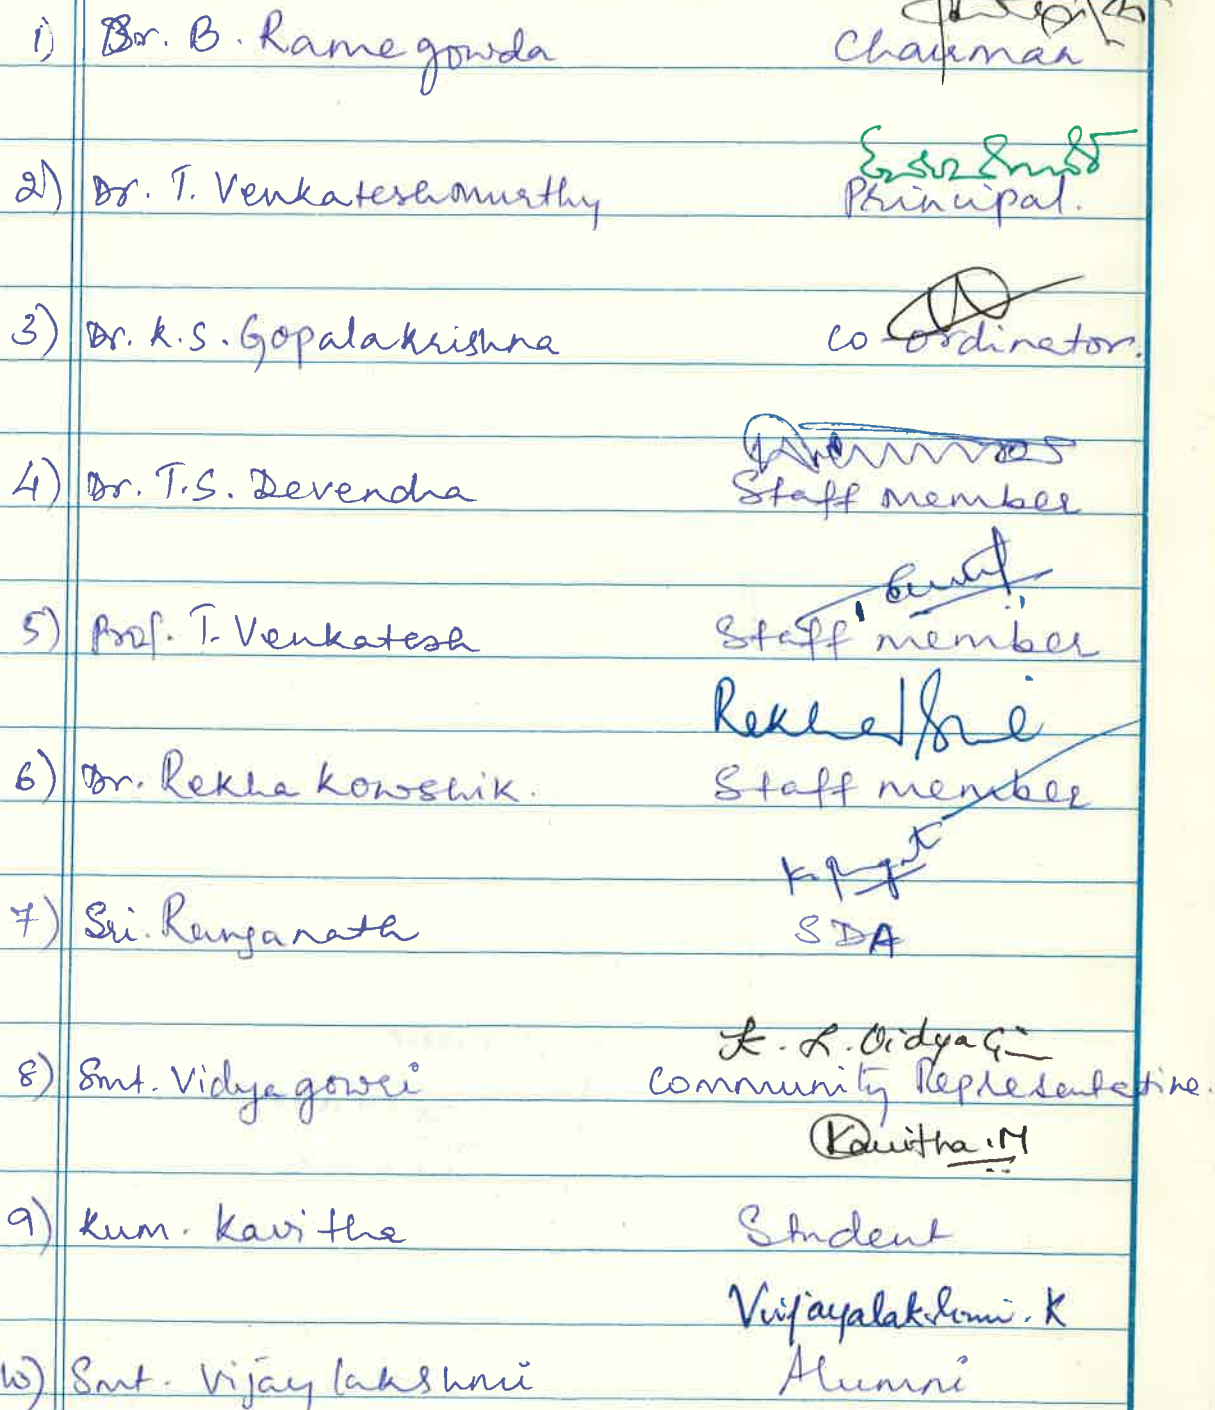 1) Dr. B. Ramegowda Chairman
2) Dr. T. Venkateshmurthy Principal.
3) Dr. K.S. Gopalakrishna Co-ordinator.
4) Dr. T.S. Devendra Staff member
5) Prof. T. Venkatesh Staff member
Rekha
6) Dr. Rekha Kowshik. Staff member
7) Sri. Ranganath SDA
K. L. Vidya
8) Smt. Vidya gowri Community Representative.
Kavitha .M
9) Kum. Kavitha Student
Vijayalakshmi. K
10) Smt. Vijay lakshmi Alumni